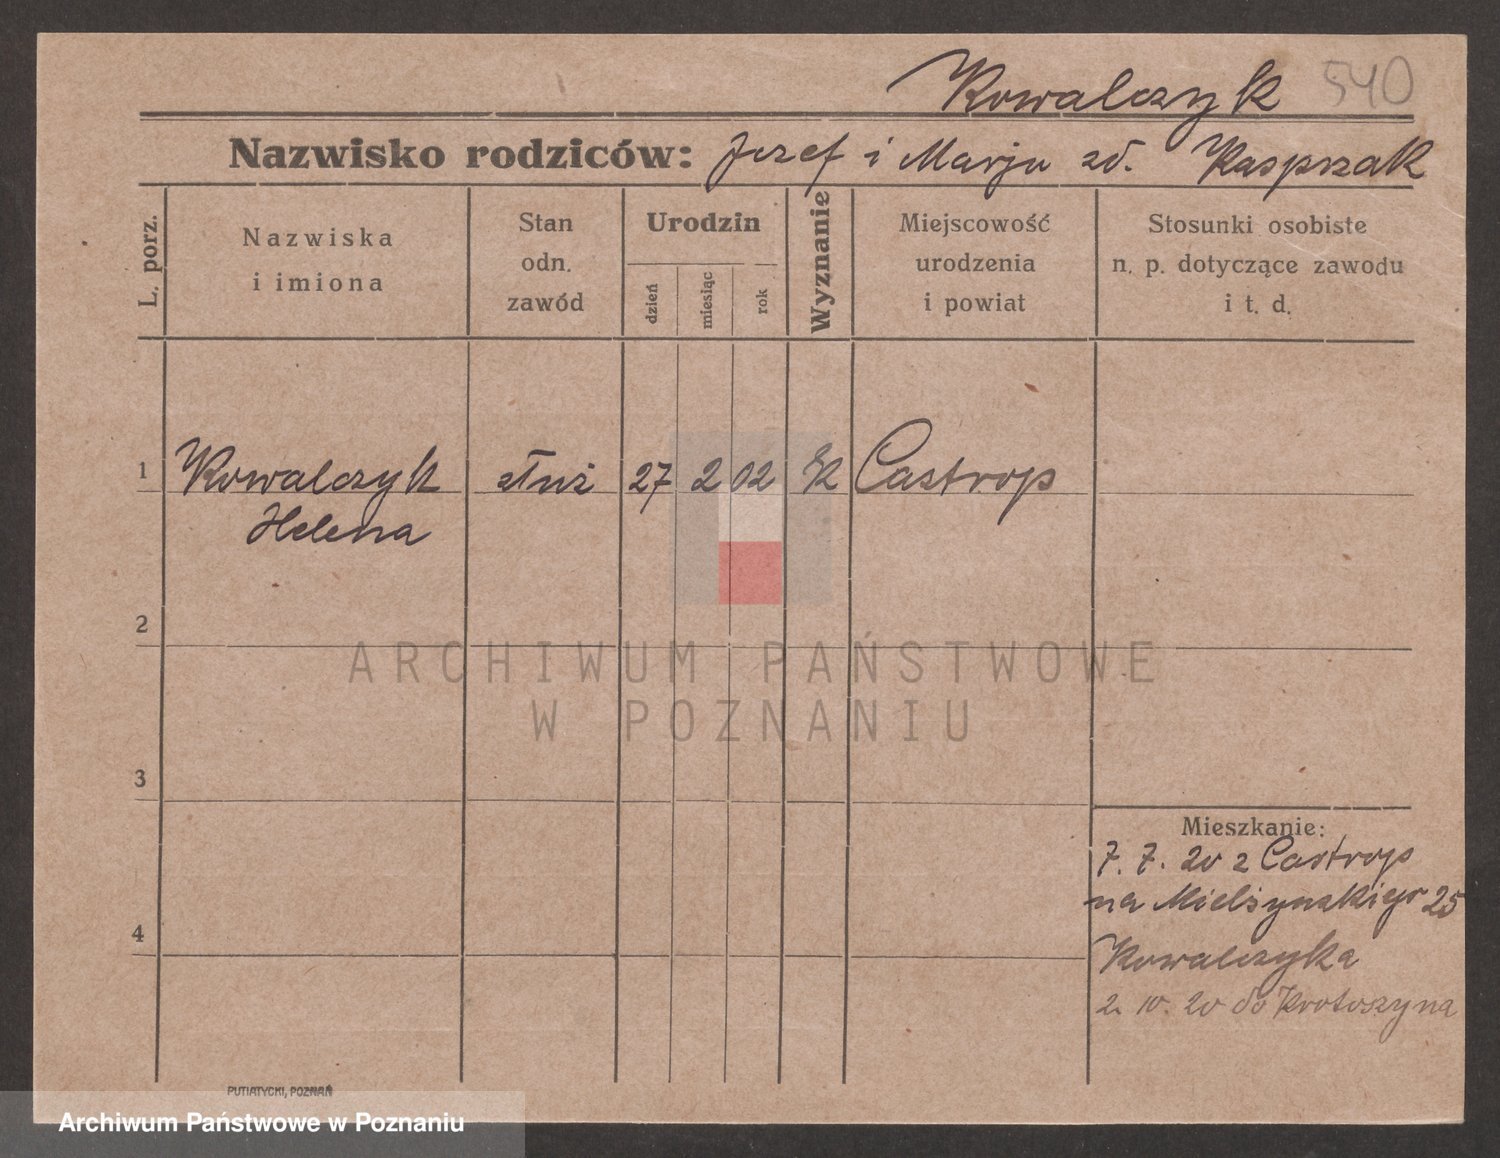 Kowalczyk 540
Nazwisko rodziców: Jozef i Marja zd. Kasprzak
L. porz.
Nazwiska
i imiona
Stan
odn.
zawód
Urodzin
dzień
miesiąc
rok
Wyznanie
Miejscowość
urodzenia
i powiat
Stosunki osobiste
n. p. dotyczące zawodu
i t. d.
1 Kowalczyk służ 27 2 02 rk Castrop
Helena
2
ARCHIWUM PAŃSTWOWE
W POZNANIU
3
Mieszkanie:
7. 7. 20 z Castrop
na Mielżynskiego 25
4
Kowalczyka
2. 10. 20 do Krotoszyna
PUTIATYCKI, POZNAŃ
Archiwum Państwowe w Poznaniu